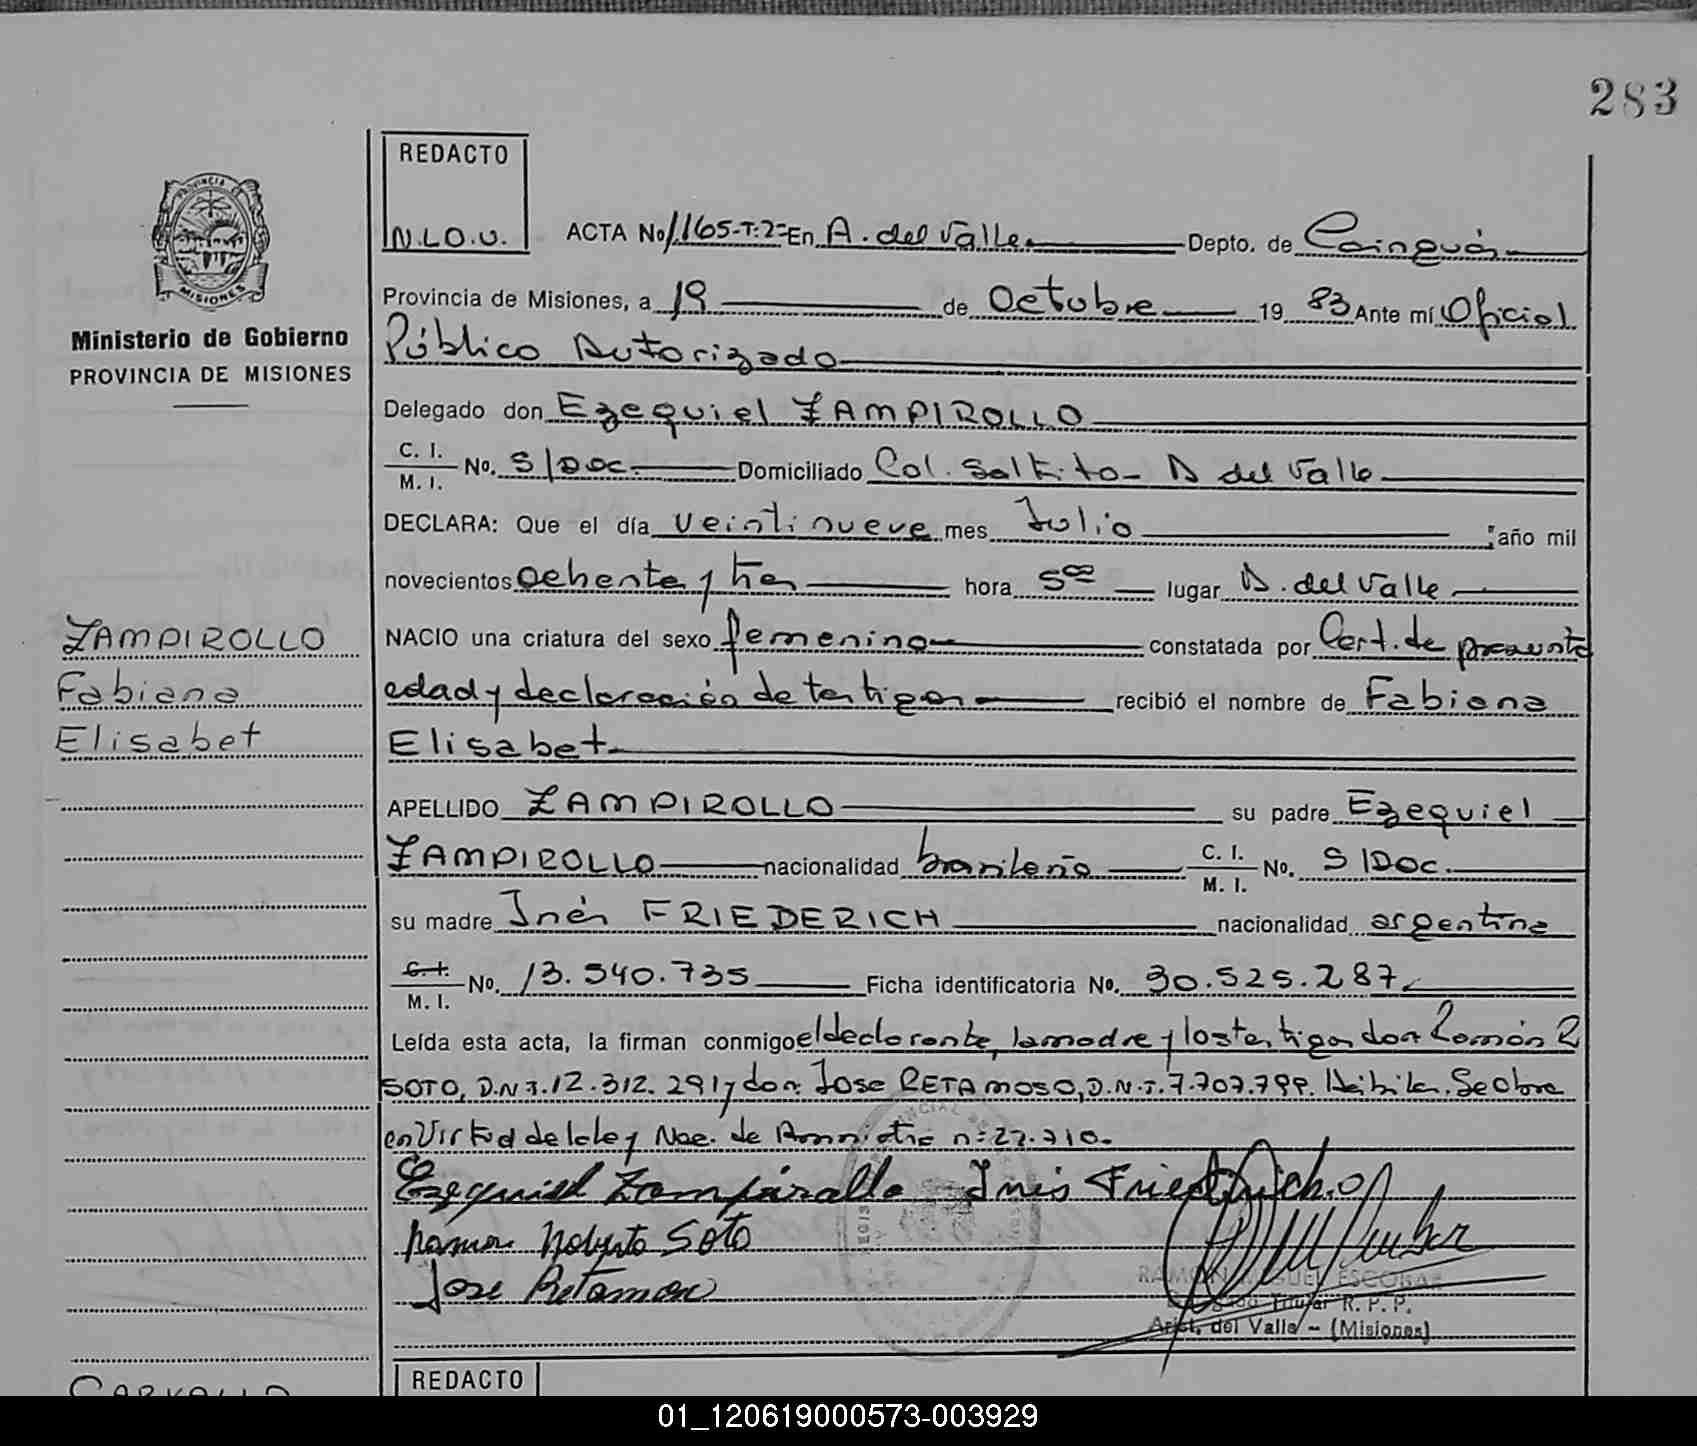 283
REDACTO
N.L.O.U.
ACTA No 1.165-T:2= En A. del Valle Depto. de Cainguás
PROVINCIA DE MISIONES
Provincia de Misiones, a 19 de Octubre 19 83 Ante mí Oficial
Ministerio de Gobierno
PROVINCIA DE MISIONES
Público Autorizado
Delegado don Ezequiel ZAMPIROLLO
C. I. M. I. No. S/Doc. Domiciliado Col. Saltito - A del Valle
DECLARA: Que el día veintinueve mes Julio año mil
novecientos ochenta y tres hora 5 00 lugar A. del Valle
ZAMPIROLLO
NACIO una criatura del sexo femenino constatada por Cert. de presunta
Fabiana
edad y declaración de testigos recibió el nombre de Fabiana
Elisabet
Elisabet
APELLIDO ZAMPIROLLO su padre Ezequiel
ZAMPIROLLO nacionalidad brasileño C. I. M. I. No. S/Doc.
su madre Inés FRIEDERICH nacionalidad argentina
C. I. M. I. No. 13.540.735 Ficha identificatoria No. 30.525.287
Leída esta acta, la firman conmigo el declarante, la madre y los testigos don Ramón R
SOTO, D.N.I. 12.312.291 y don Jose RETAMOSO, D.N.I. 7.707.799. Hábiles. Se labra
en Virtud de la ley Nac. de Amnistia nº 22.710.
Ezequiel Zampirollo Inis Friedrich.
Ramon Roberto Soto
Jose Retamoso
RAMON MIGUEL ESCOBAR
Delegado Titular R. P. P.
Arist. del Valle - (Misiones)
REDACTO
CARVALLO
01_120619000573-003929